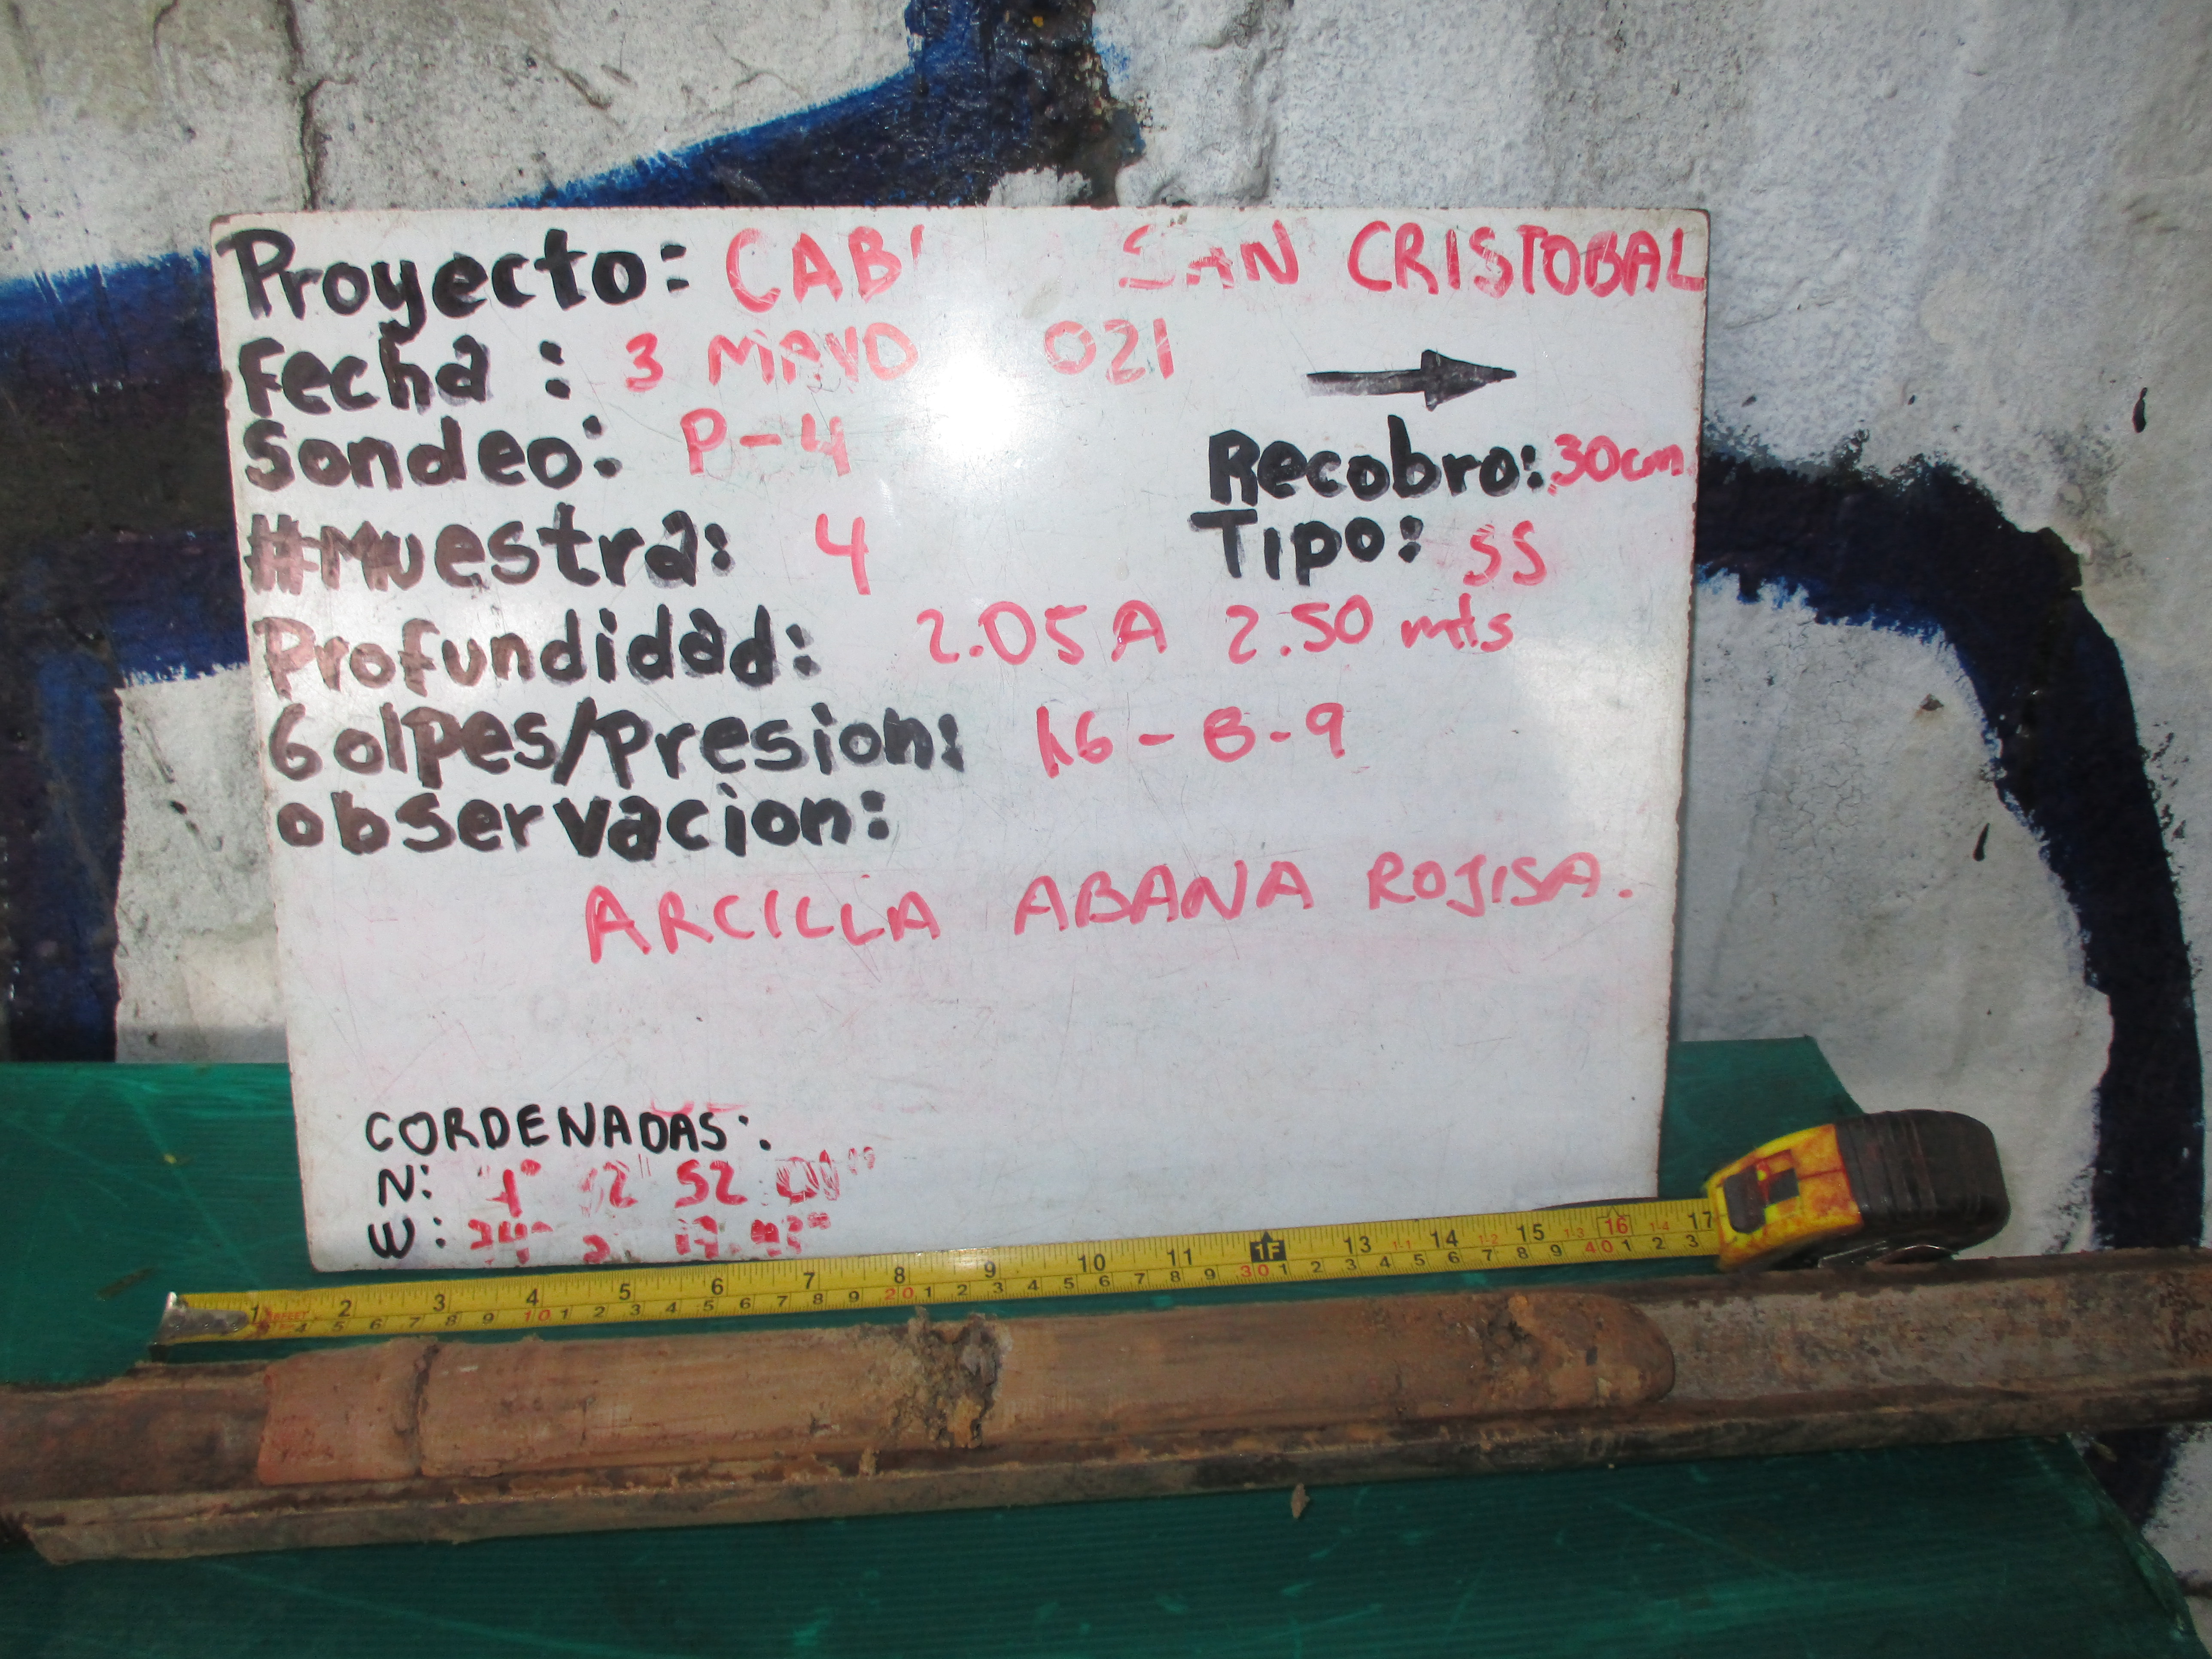 Proyecto: CAB SAN CRISTOBAL
Fecha : 3 MAYO 021
Sondeo: P-4
Recobro: 30cm
#Muestra: 4
Tipo: SS
Profundidad: 2.05 A 2.50 mts
Golpes/Presion: - 8-9
observacion:
ARCILLA ABANA ROJISA.
CORDENADAS:.
N: 52
E:
1 2 3 4 5 6 7 8 9 10 11 1F 13 14 15 16 17